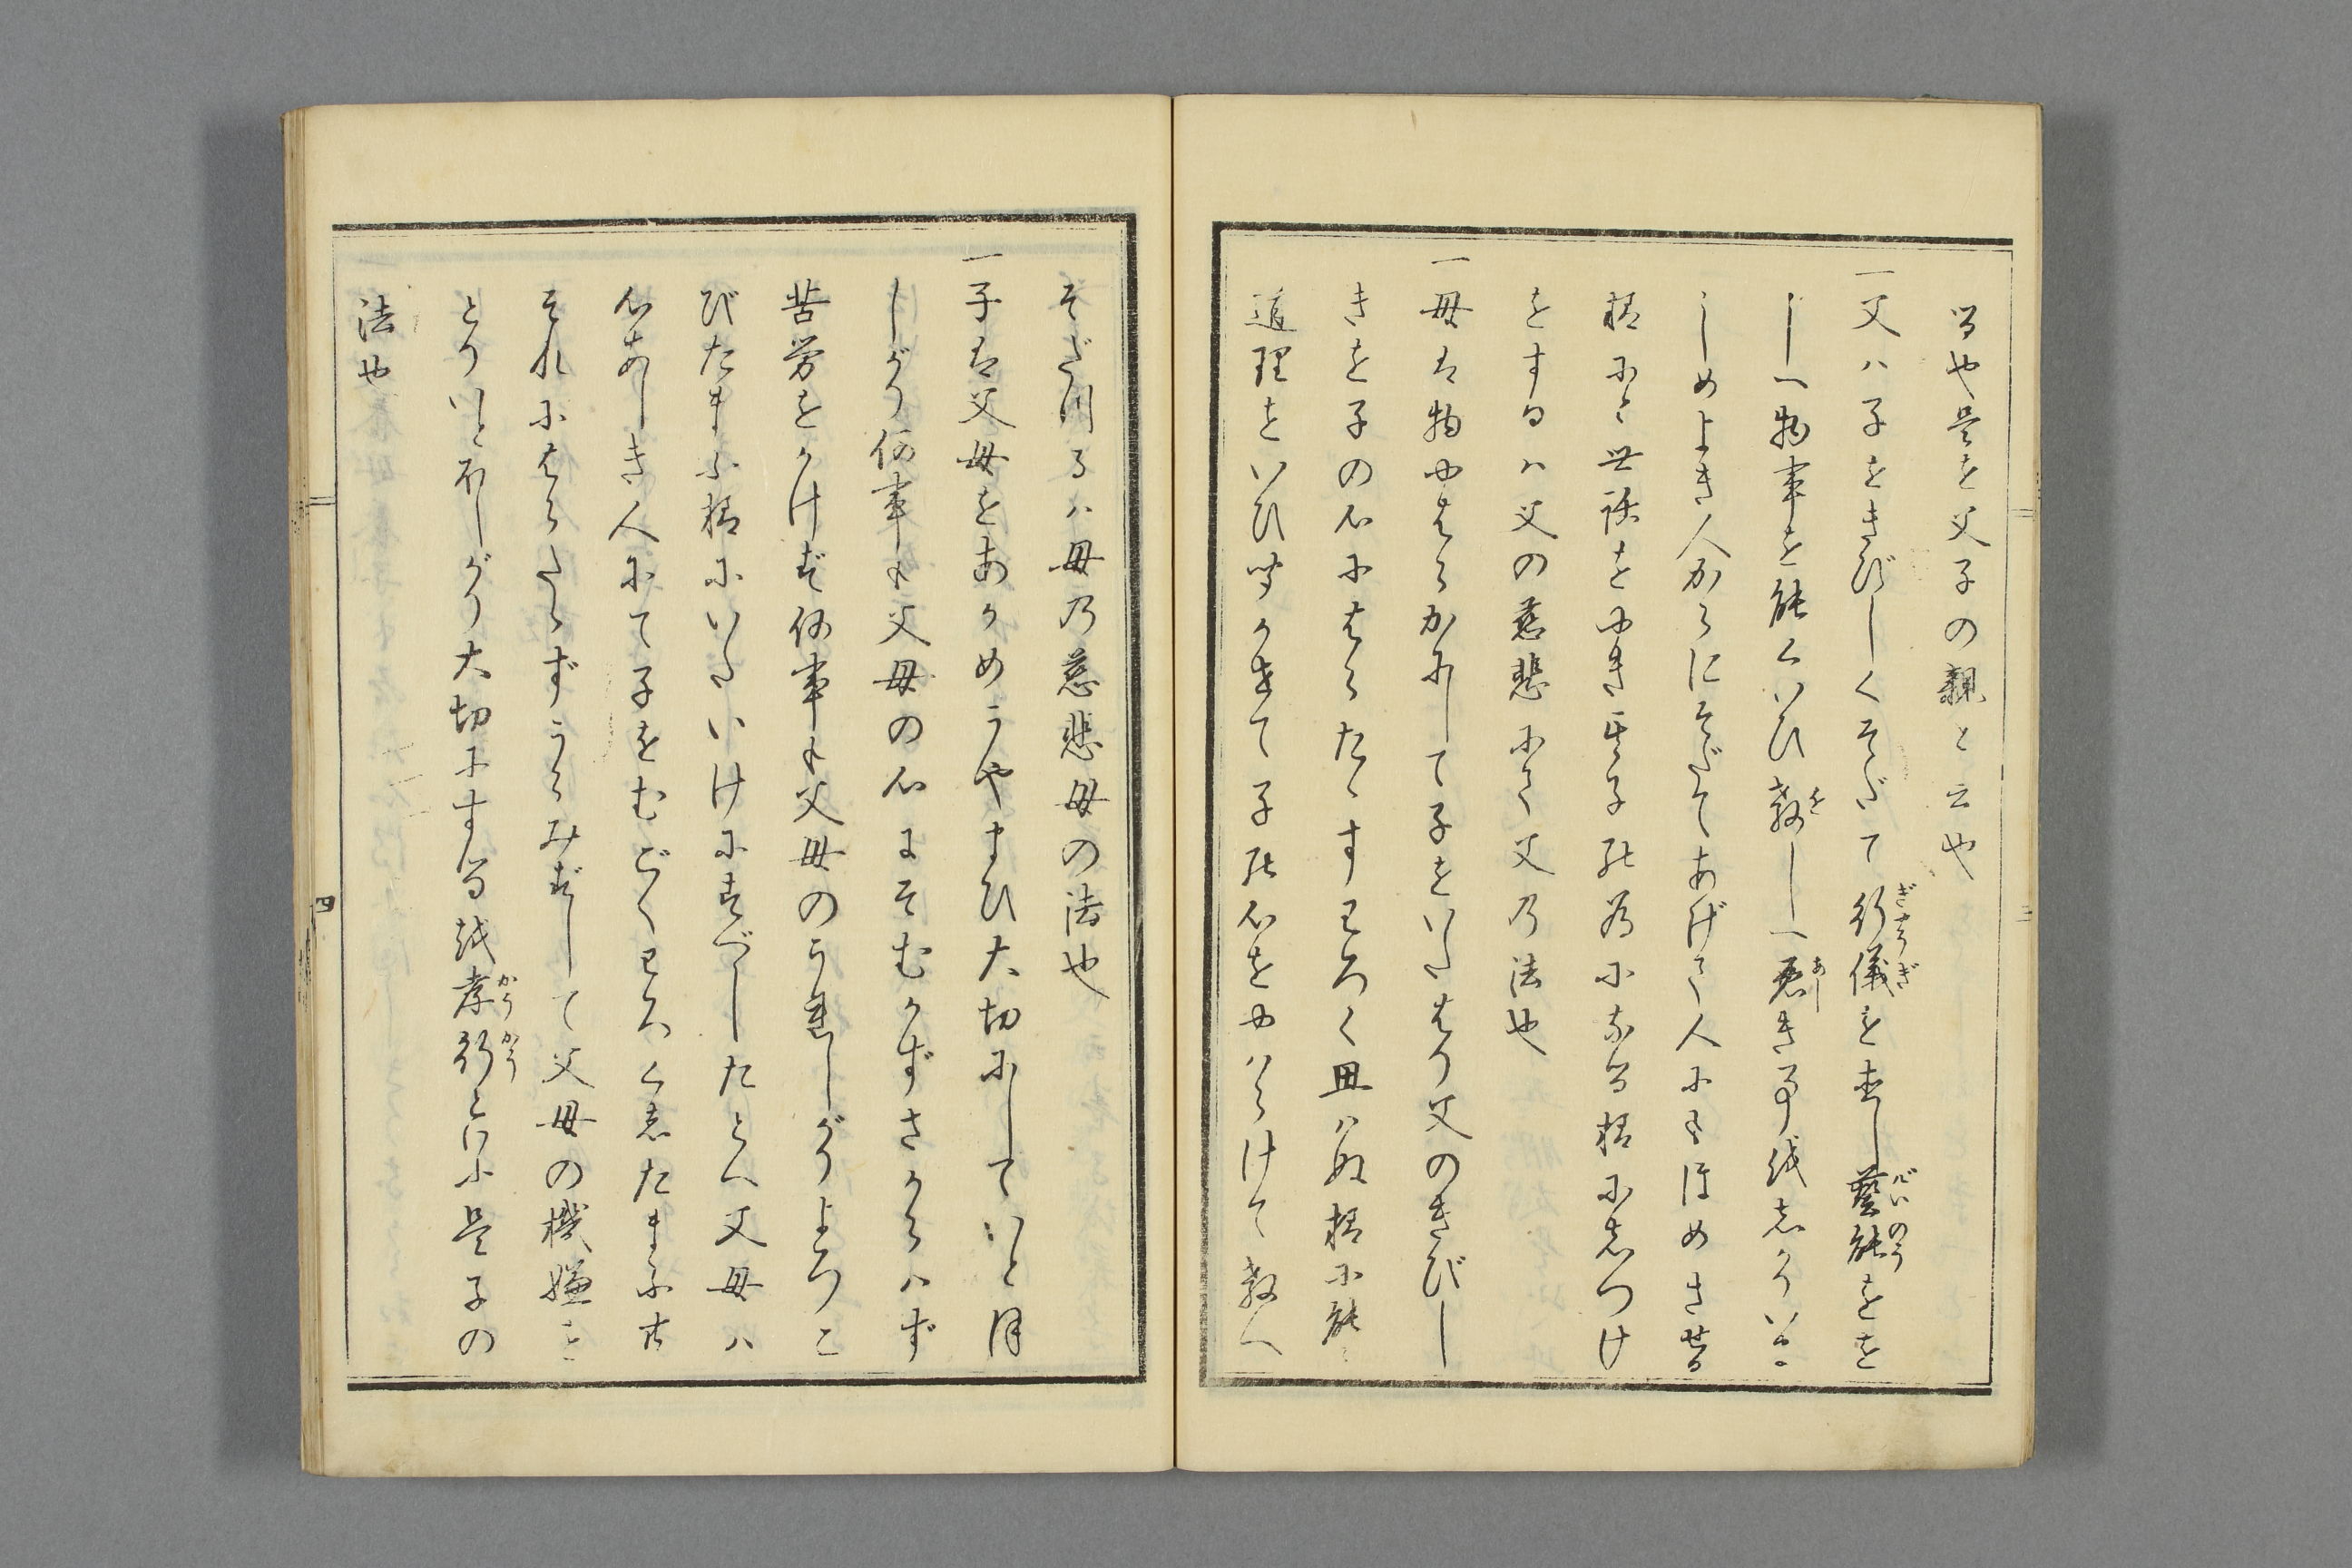 る也是を父子の親と云也
一父ハ子をきびしくそだて行儀を直し藝能をを
しへ物事を能くいひ教しへ悪き事越志かりいま
しめよき人がらにそだてあげて人にもほめさせる
様にと世話をやき其子の為になる様に志つけ
をするハ父の慈悲にて父乃法也
一母は物やはらかにして子をいたはり父のきびし
きを子の心にはらたゝすわろく思ハぬ様に能
道理をいひ聞かせて子の心をやハらけて教へ
そだ川るハ母乃慈悲母の法也
一子は父母をあがめうやまひ大切にしていとほ
しがり何事も父母の心にそむかずさからハず
苦労をかけず何事も父母のうれしがりよろこ
びたまふ様にいたいけにすべしたとへ父母ハ
心あしき人にて子をむごくわろく志たまふ共
それにはらたゝずうらみずして父母の機嫌を
とりいとおしがり大切にする越孝行といふ是子の
法也
四